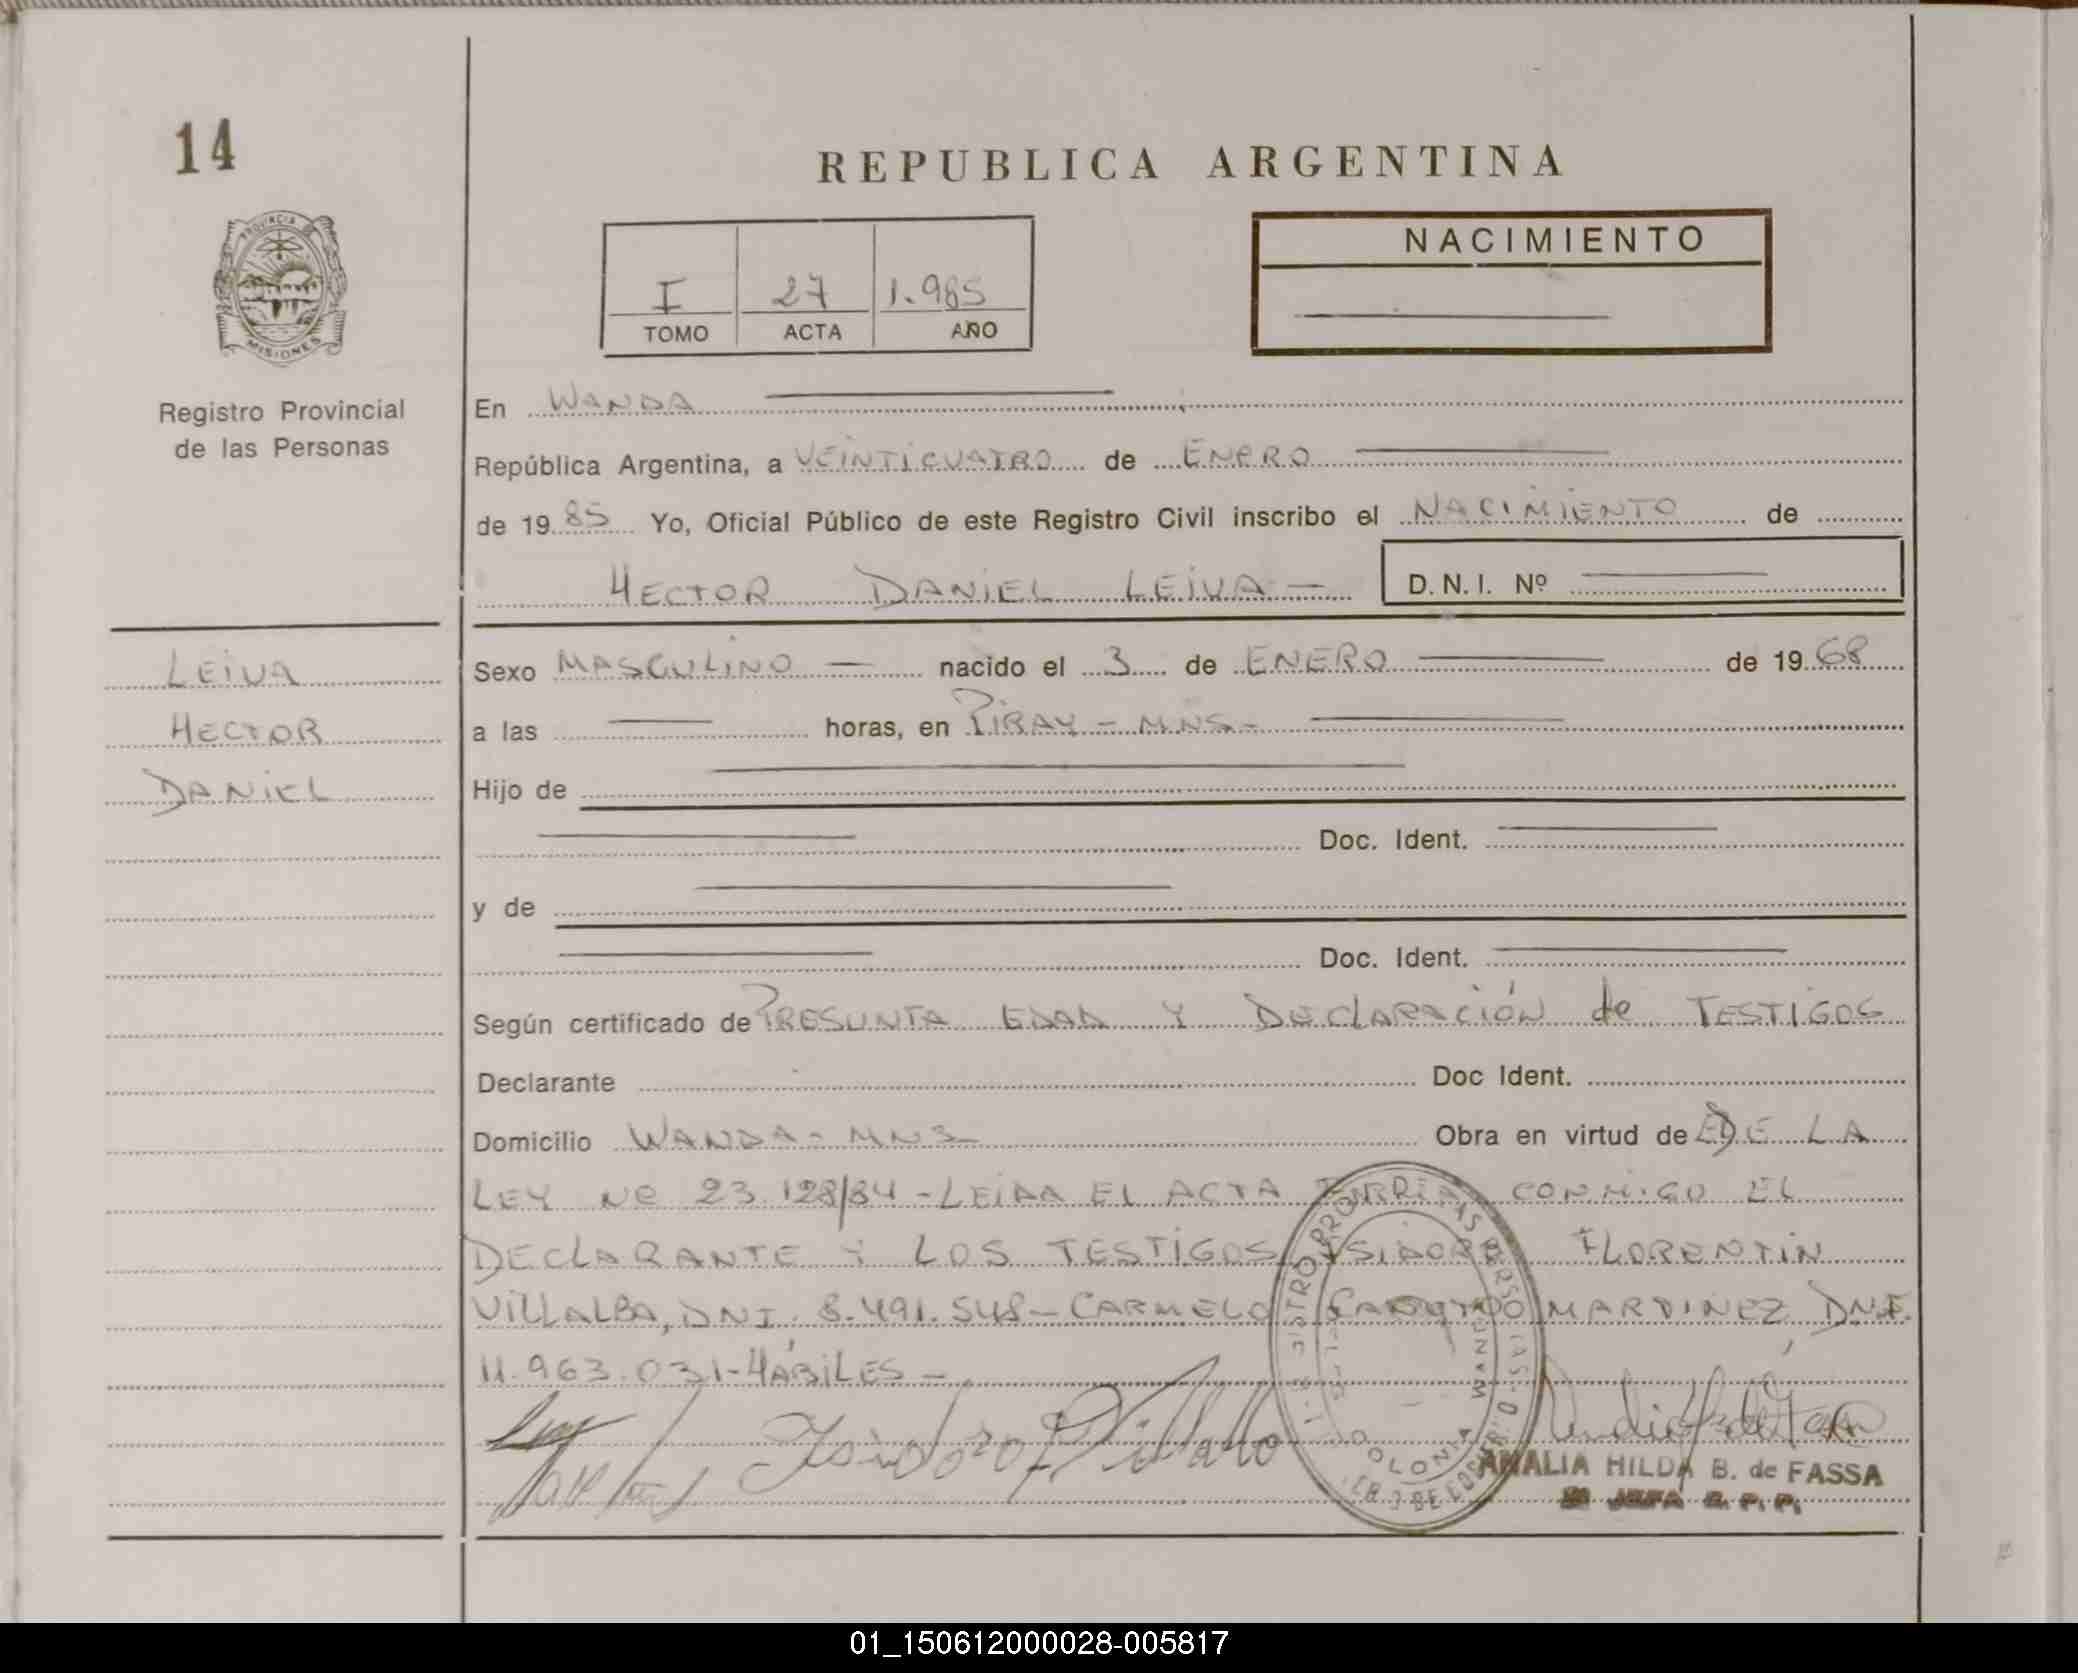 14
REPUBLICA ARGENTINA
PROVINCIA DE
MISIONES
Registro Provincial
de las Personas
I 27 1.985
TOMO ACTA AÑO
NACIMIENTO
En WANDA
República Argentina, a VEINTICUATRO de ENERO
de 19 85 Yo, Oficial Público de este Registro Civil inscribo el NACIMIENTO de
HECTOR DANIEL LEIVA - D.N.I. Nº
LEIVA
HECTOR
DANIEL
Sexo MASCULINO - nacido el 3 de ENERO de 19 68
a las horas, en PIRAY - MNS -
Hijo de
Doc. Ident.
y de
Doc. Ident.
Según certificado de PRESUNTA EDAD Y DEClARACIÓN de TESTIGOS
Declarante Doc Ident.
Domicilio WANDA - MNS Obra en virtud de DE LA
LEY Nº 23.128/84 - LEIDA EL ACTA CONMIGO EL
DEClARANTE Y LOS TESTIGOS ISIDORO FLORENTIN
VILLALBA, DNI. 8.491.548 - CARMELO MARDINEZ, DNI.
11.963.031 - HÁBILES -
Isidoro F Villalba
COLONIA WANDA
ANALIA HILDA B. de FASSA
JEFA R. P. P.
01_150612000028-005817